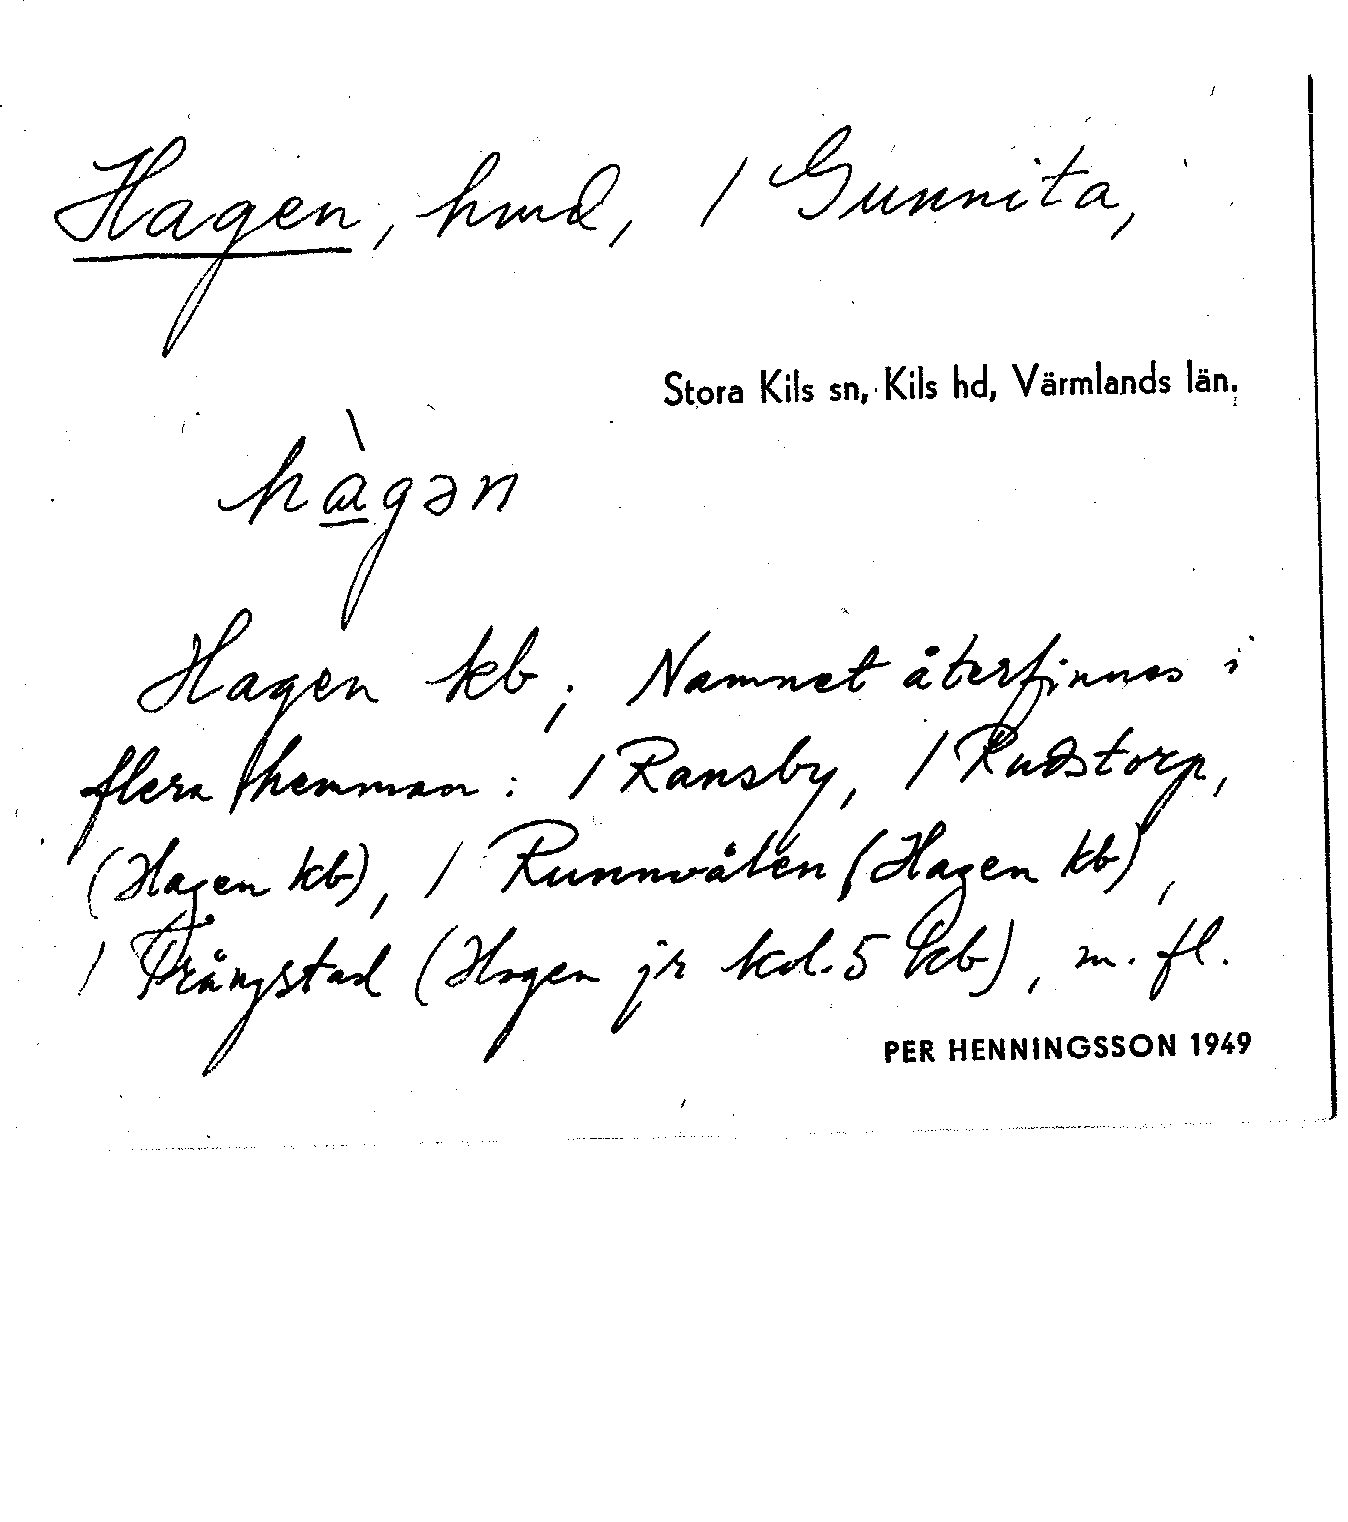 Hagen, hmd, / Gunnita,
Stora Kils sn, Kils hd, Värmlands län.
hàgən
Hagen kb; Namnet återfinnes i
flera hemman: / Ransby, / Rudstorp,
(Hagen kb), / Runnvålen (Hagen kb),
/ Trångstad (Hagen jr kol. 5 kb), m. fl.
PER HENNINGSSON 1949